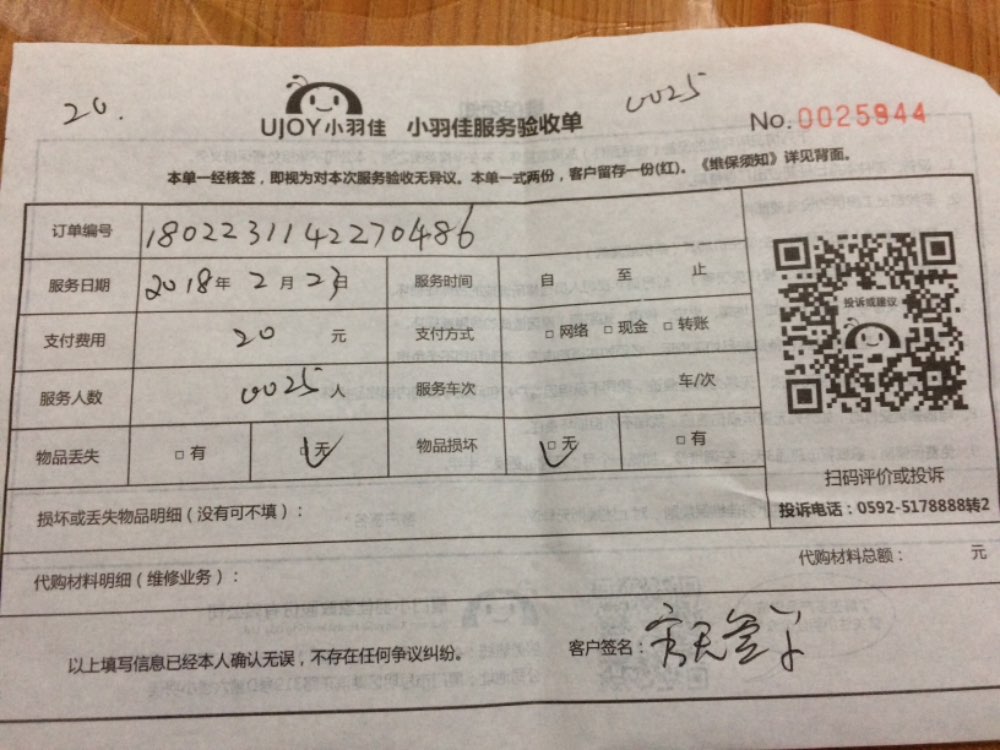 20.
0025
UJOY小羽佳 小羽佳服务验收单
No.0025944
本单一经核签，即视为对本次服务验收无异议。本单一式两份，客户留存一份(红)。《维保须知》详见背面。
订单编号 1802231142270486
服务日期 2018年 2月 23日 服务时间 自 至 止
支付费用 20 元 支付方式 □ 网络 □ 现金 □ 转账
服务人数 0025 服务车次 车/次
物品丢失 □ 有 □ 无 物品损坏 □ 无 □ 有
投诉或建议
扫码评价或投诉
投诉电话：0592-5178888转2
损坏或丢失物品明细（没有可不填）：
代购材料明细（维修业务）：
代购材料总额： 元
以上填写信息已经本人确认无误，不存在任何争议纠纷。
客户签名：